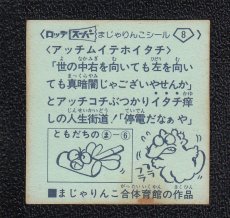 ロッテ スーパー まじゃりんこシール 8
<アッチムイテホイタチ>
「世の中右を向いても左を向い
ても真暗闇じゃございやせんか」
とアッチコチぶつかりイタチ痒
しの人生街道！「停電だなぁや」
ともだちの ま-6
フラ
フラ
■まじゃりんこ合体育館の作品